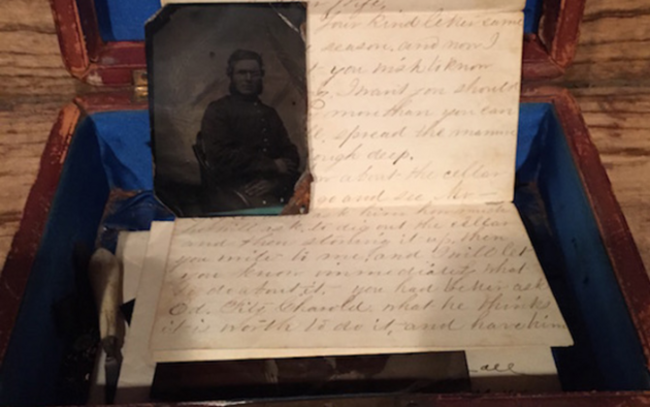 Your kind letter came
season, and now I
you wish to know
I want you should
more than you can
spread the manure
ough deep.
about the cellar
go and see
ask him how much
ask to dig out the cellar
and then stoning it up, then
you write to me, and I will let
you know immediately what
to do about it. you had better ask
Ed. Fitz Gharold what he thinks
it is worth to do it, and have him
all